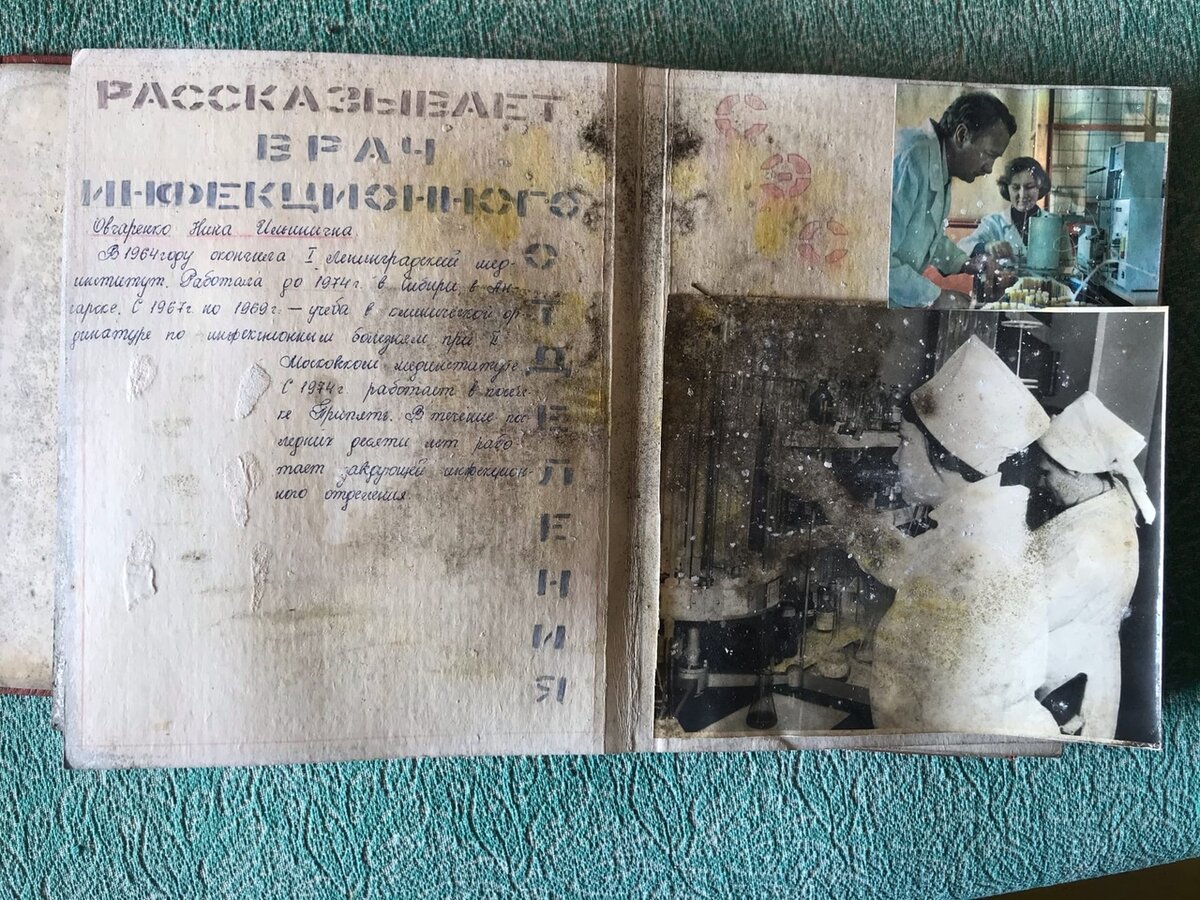 РАССКАЗЫВАЕТ
ВРАЧ
ИНФЕКЦИОННОГО
ОТДЕЛЕНИЯ
Овчаренко Нина Ильинична
В 1964 году окончила I Ленинградский мед-
институт. Работала до 1974г. в Сибири в Ан-
гарске. С 1967г. по 1969г. – учеба в клинической ор-
динатуре по инфекционным болезням при II
Московском мединституте.
С 1974г. работает в посел-
ке Припять. В течение пос-
ледних десяти лет рабо-
тает заведующей инфекцион-
ного отделения.